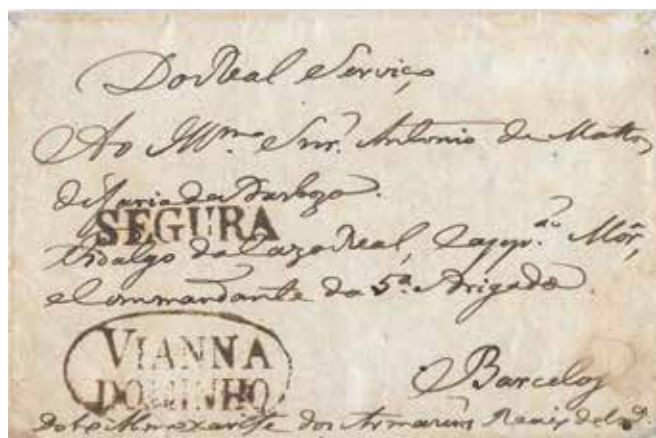 Do Real Serviço
Ao Illmo. Snr. Antonio de Mattos
de Faria da Barboza.
SEGURA
Fidalgo da Caza Real, Cappm. Mór,
e Commandante da 5ª. Brigada.
VIANNA
DO MINHO
Barcelos
do Almoxarife dos Armazins Reais de